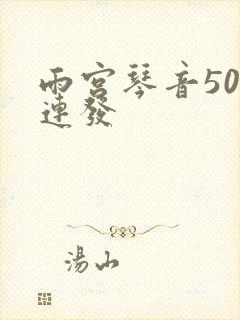 雨宮琴音50
連發
湯山